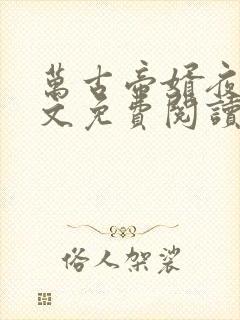 萬古帝婿夜
文免費閱讀
俗人架裟